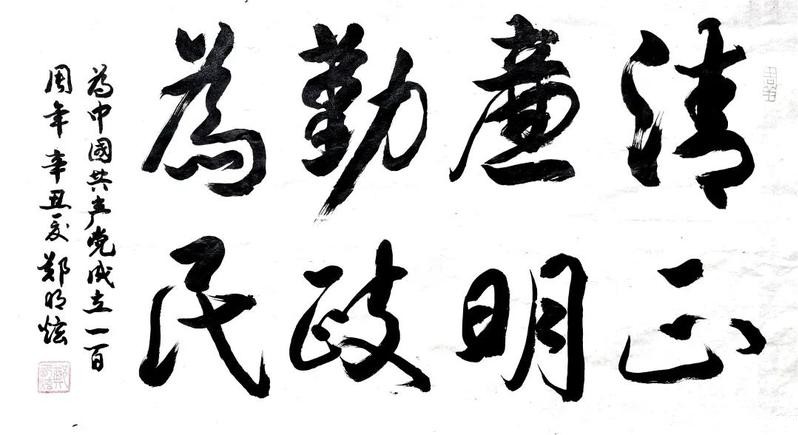 清正
廉明
勤政
為民
為中國共产党成立一百
周年辛丑夏鄭明炫